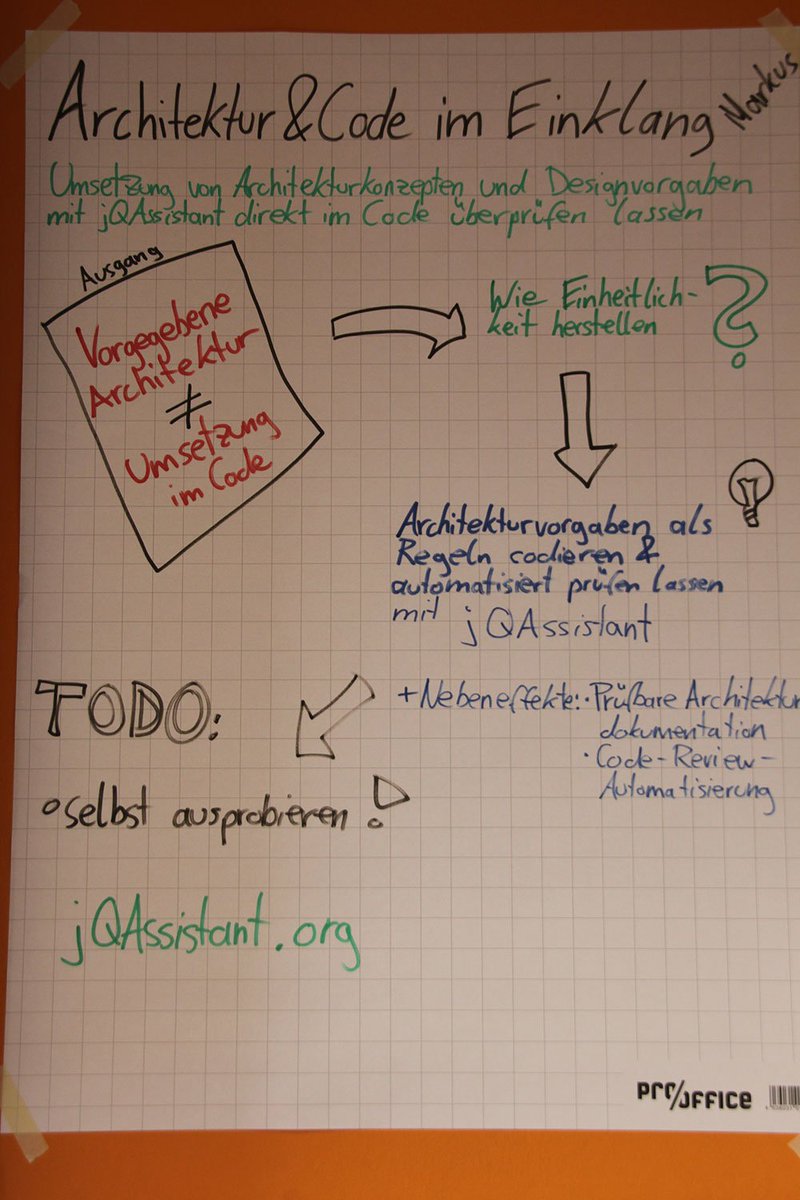 Architektur & Code im Einklang
Markus
Umsetzung von Architekturkonzepten und Designvorgaben
mit jQAssistant direkt im Code überprüfen lassen
Ausgang
Vorgegebene
Architektur
≠
Umsetzung
im Code
Wie Einheitlich-
keit herstellen
?
Architekturvorgaben als
Regeln codieren &
automatisiert prüfen lassen
mit jQAssistant
+ Nebeneffekte: · Prüfbare Architektur
dokumentation
· Code-Review-
Automatisierung
TODO:
selbst ausprobieren !
jQAssistant.org
pro/office